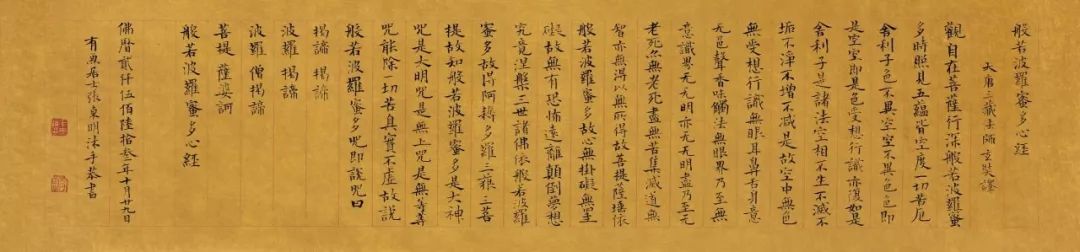 般若波羅蜜多心經
大唐三藏法師玄奘譯
觀自在菩薩行深般若波羅蜜
多時照見五蘊皆空度一切苦厄
舍利子色不異空空不異色色即
是空空即是色受想行識亦復如是
舍利子是諸法空相不生不滅不
垢不淨不增不減是故空中無色
無受想行識無眼耳鼻舌身意
无色聲香味觸法無眼界乃至無
意識界无無明亦无无明盡乃至无
老死亦無老死盡無苦集滅道無
智亦無得以無所得故菩提薩埵依
般若波羅蜜多故心無掛礙無罣
礙故無有恐怖遠離顛倒夢想
究竟涅槃三世諸佛依般若波羅
蜜多故得阿耨多羅三藐三菩
提故知般若波羅蜜多是大神
咒是大明咒是無上咒是無等等
咒能除一切苦真實不虛故說
般若波羅蜜多咒即說咒曰
揭諦 揭諦
波羅 揭諦
波羅 僧揭諦
菩提 薩婆訶
般若波羅蜜多心經
佛曆貳仟伍佰陸拾叁年十月廿九日
有典居士張東明沐手恭書